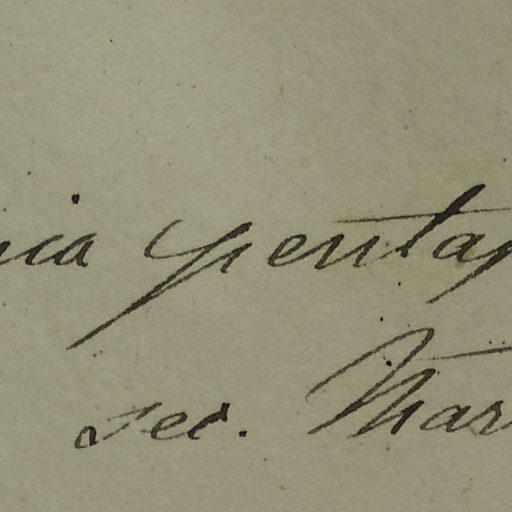 nia pentap
sec. Mar